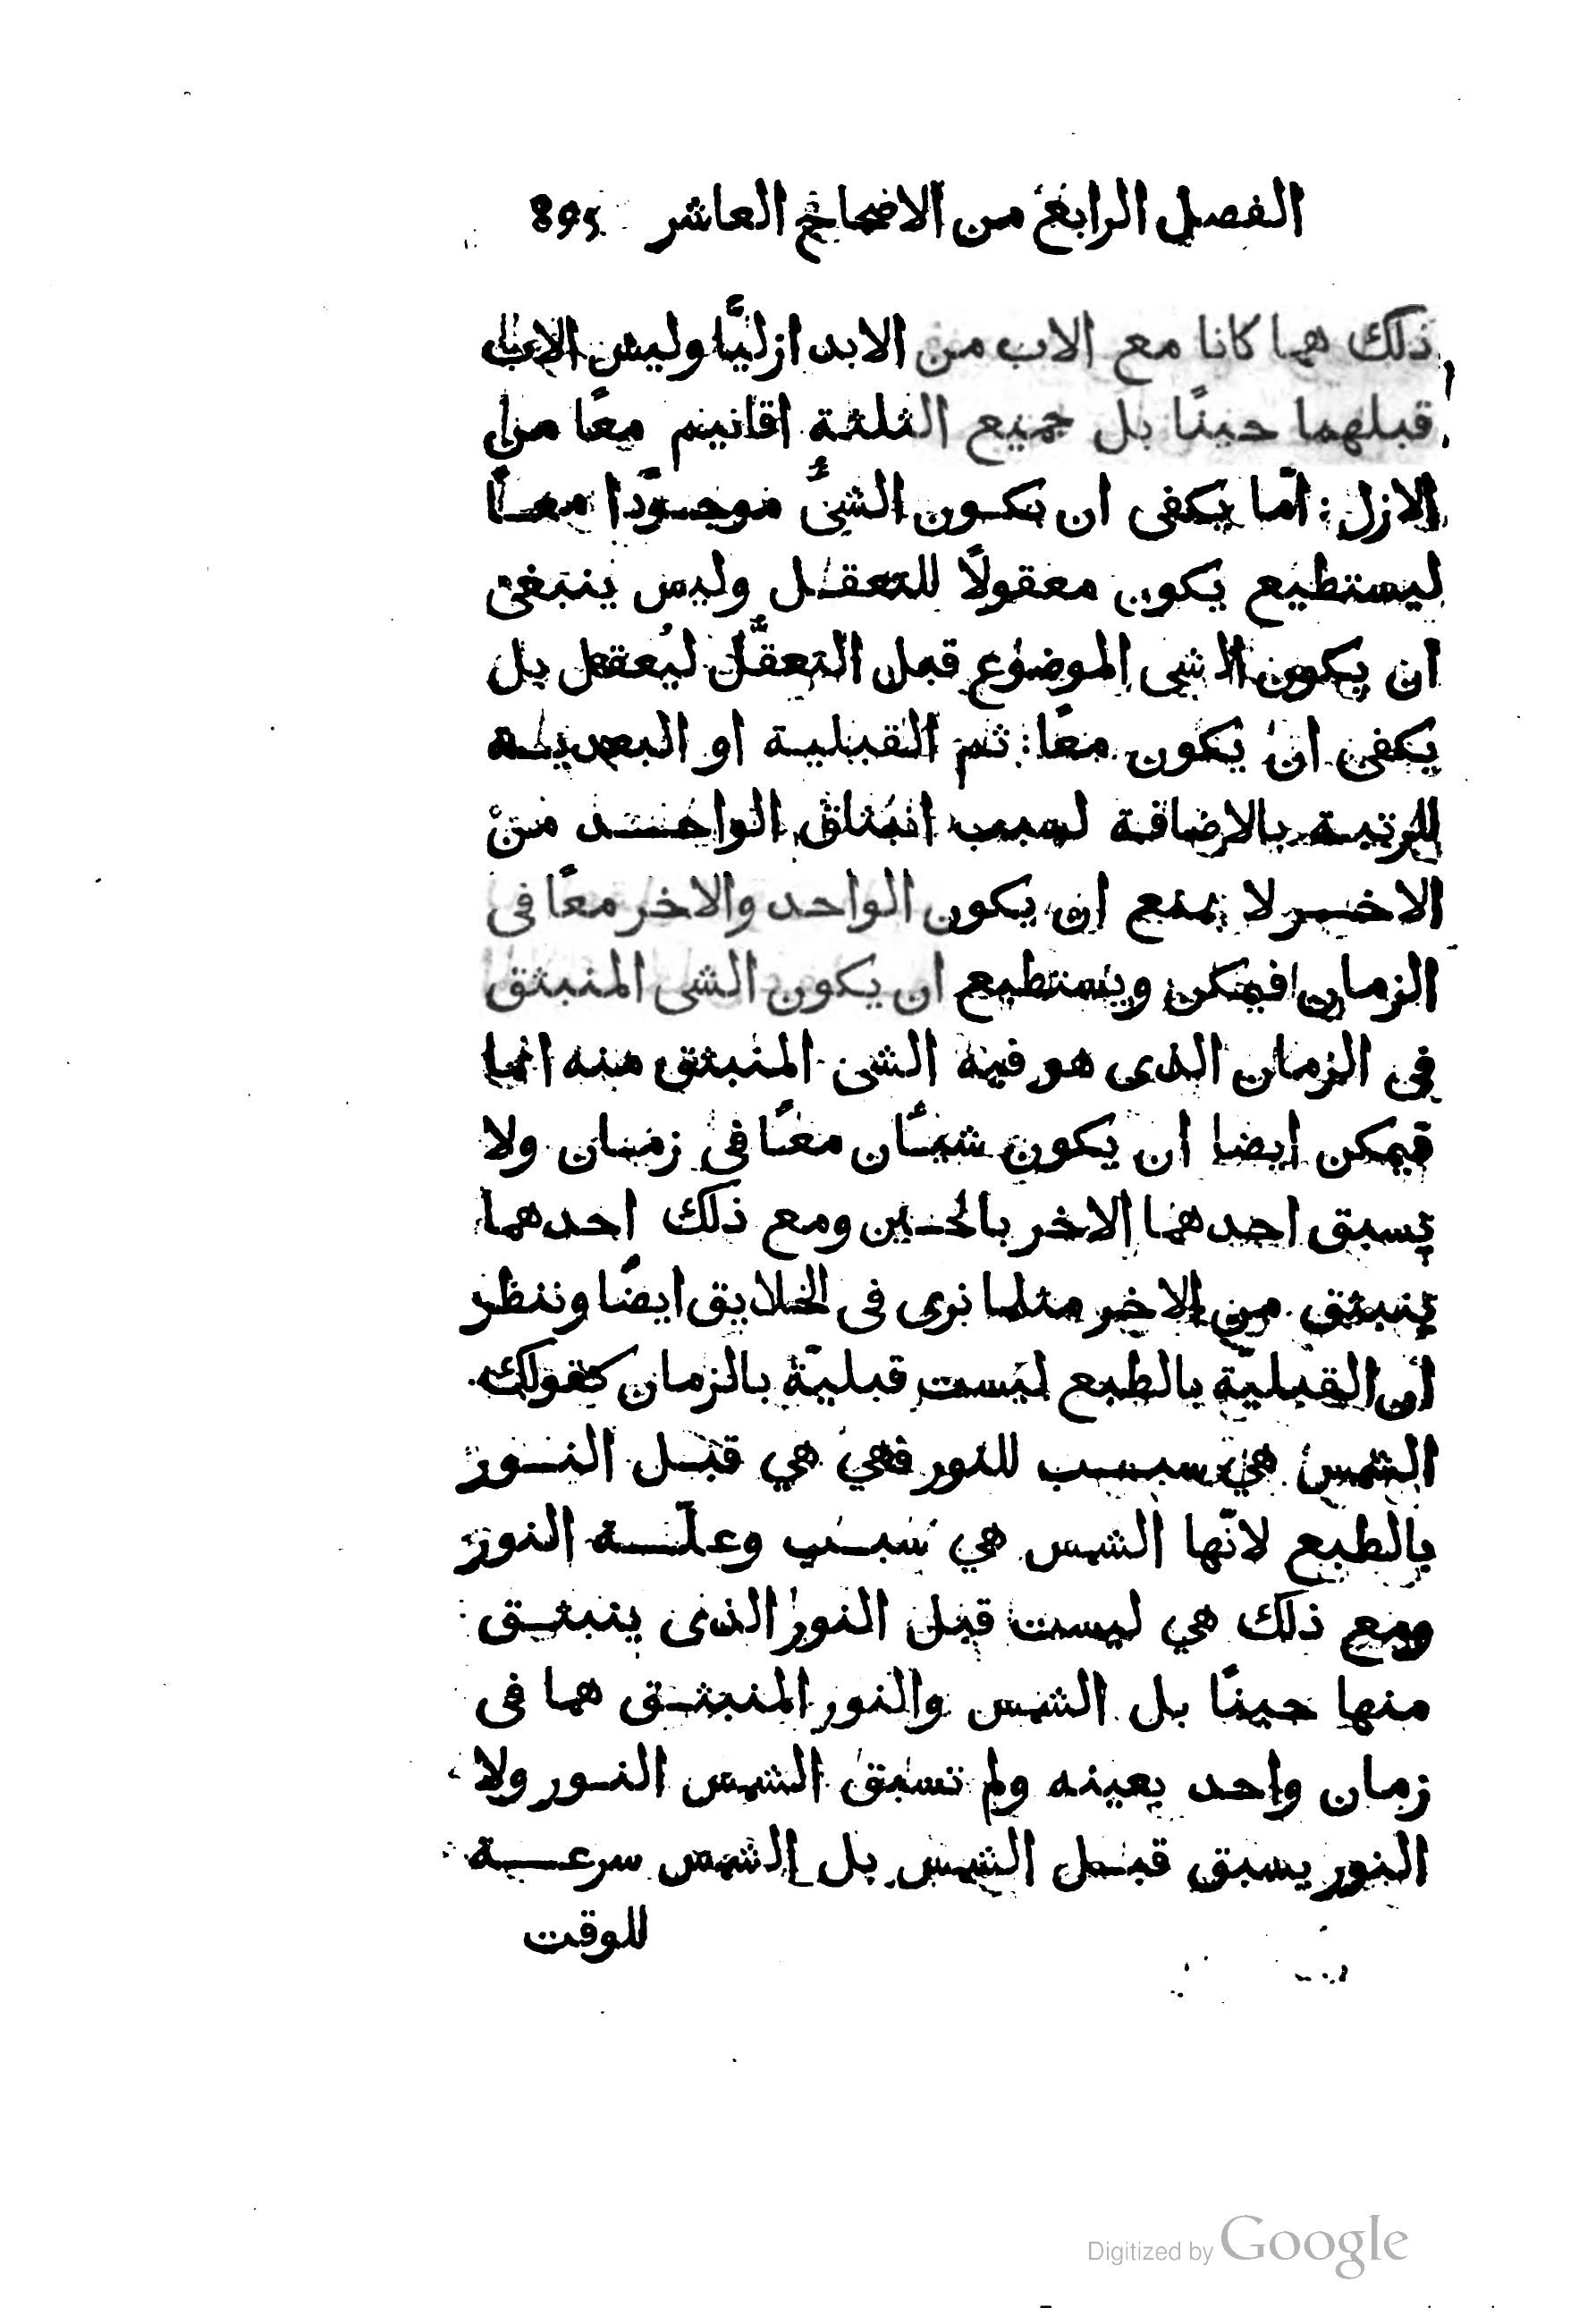 الفصل الرابع من الاصحاح العاشر 895
ذلك هما كانا مع الاب من الابد ازليًّا وليس الاب
قبلهما حينًا بل جميع الثلثة اقانيم معًا من
الازل : امّا يكفى ان يكون الشئُ موجودًا معًا
ليستطيع يكون معقولًا للتعقل وليس ينبغى
ان يكون الشى الموضوع قبل التعقّل ليُعقل بل
يكفى ان يكون معًا : ثم القبلية او البعدية
للرتبة بالاضافة لسبب انبثاق الواحد من
الاخر لا يمنع ان يكون الواحد والاخر معًا فى
الزمان فيمكن ويستطيع ان يكون الشى المنبثق
فى الزمان الذى هو فيه الشى المنبثق منه انما
فيمكن ايضا ان يكون شيئان معًا فى زمان ولا
يسبق احدهما الاخر بالحين ومع ذلك احدهما
ينبثق من الاخر مثلما نرى فى الخلايق ايضًا وننظر
ان القبليّة بالطبع ليست قبليّة بالزمان كقولك
الشمس هي سبب للنور فهي هي قبل النور
بالطبع لانّها الشمس هي سبب وعلّة النور
ومع ذلك هي ليست قبل النور الذى ينبثق
منها حينًا بل الشمس والنور المنبثق هما فى
زمان واحد بعينه ولم تسبق الشمس النور ولا
النور يسبق قبل الشمس بل الشمس سرعة
للوقت
Digitized by Google